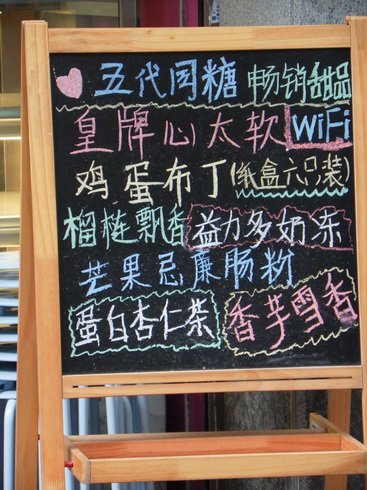 五代同糖 畅销甜品
皇牌心太软 WiFi
鸡蛋布丁(纸盒六只装)
榴梿飘香 益力多奶冻
芒果忌廉肠粉
蛋白杏仁茶 香芋雪香